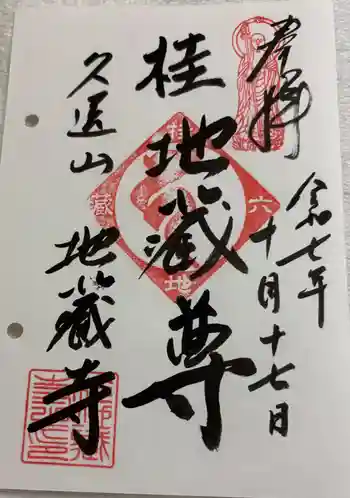 奉拝
令和七年
十月十七日
桂地蔵尊
久遠山
地蔵寺
六
地
蔵